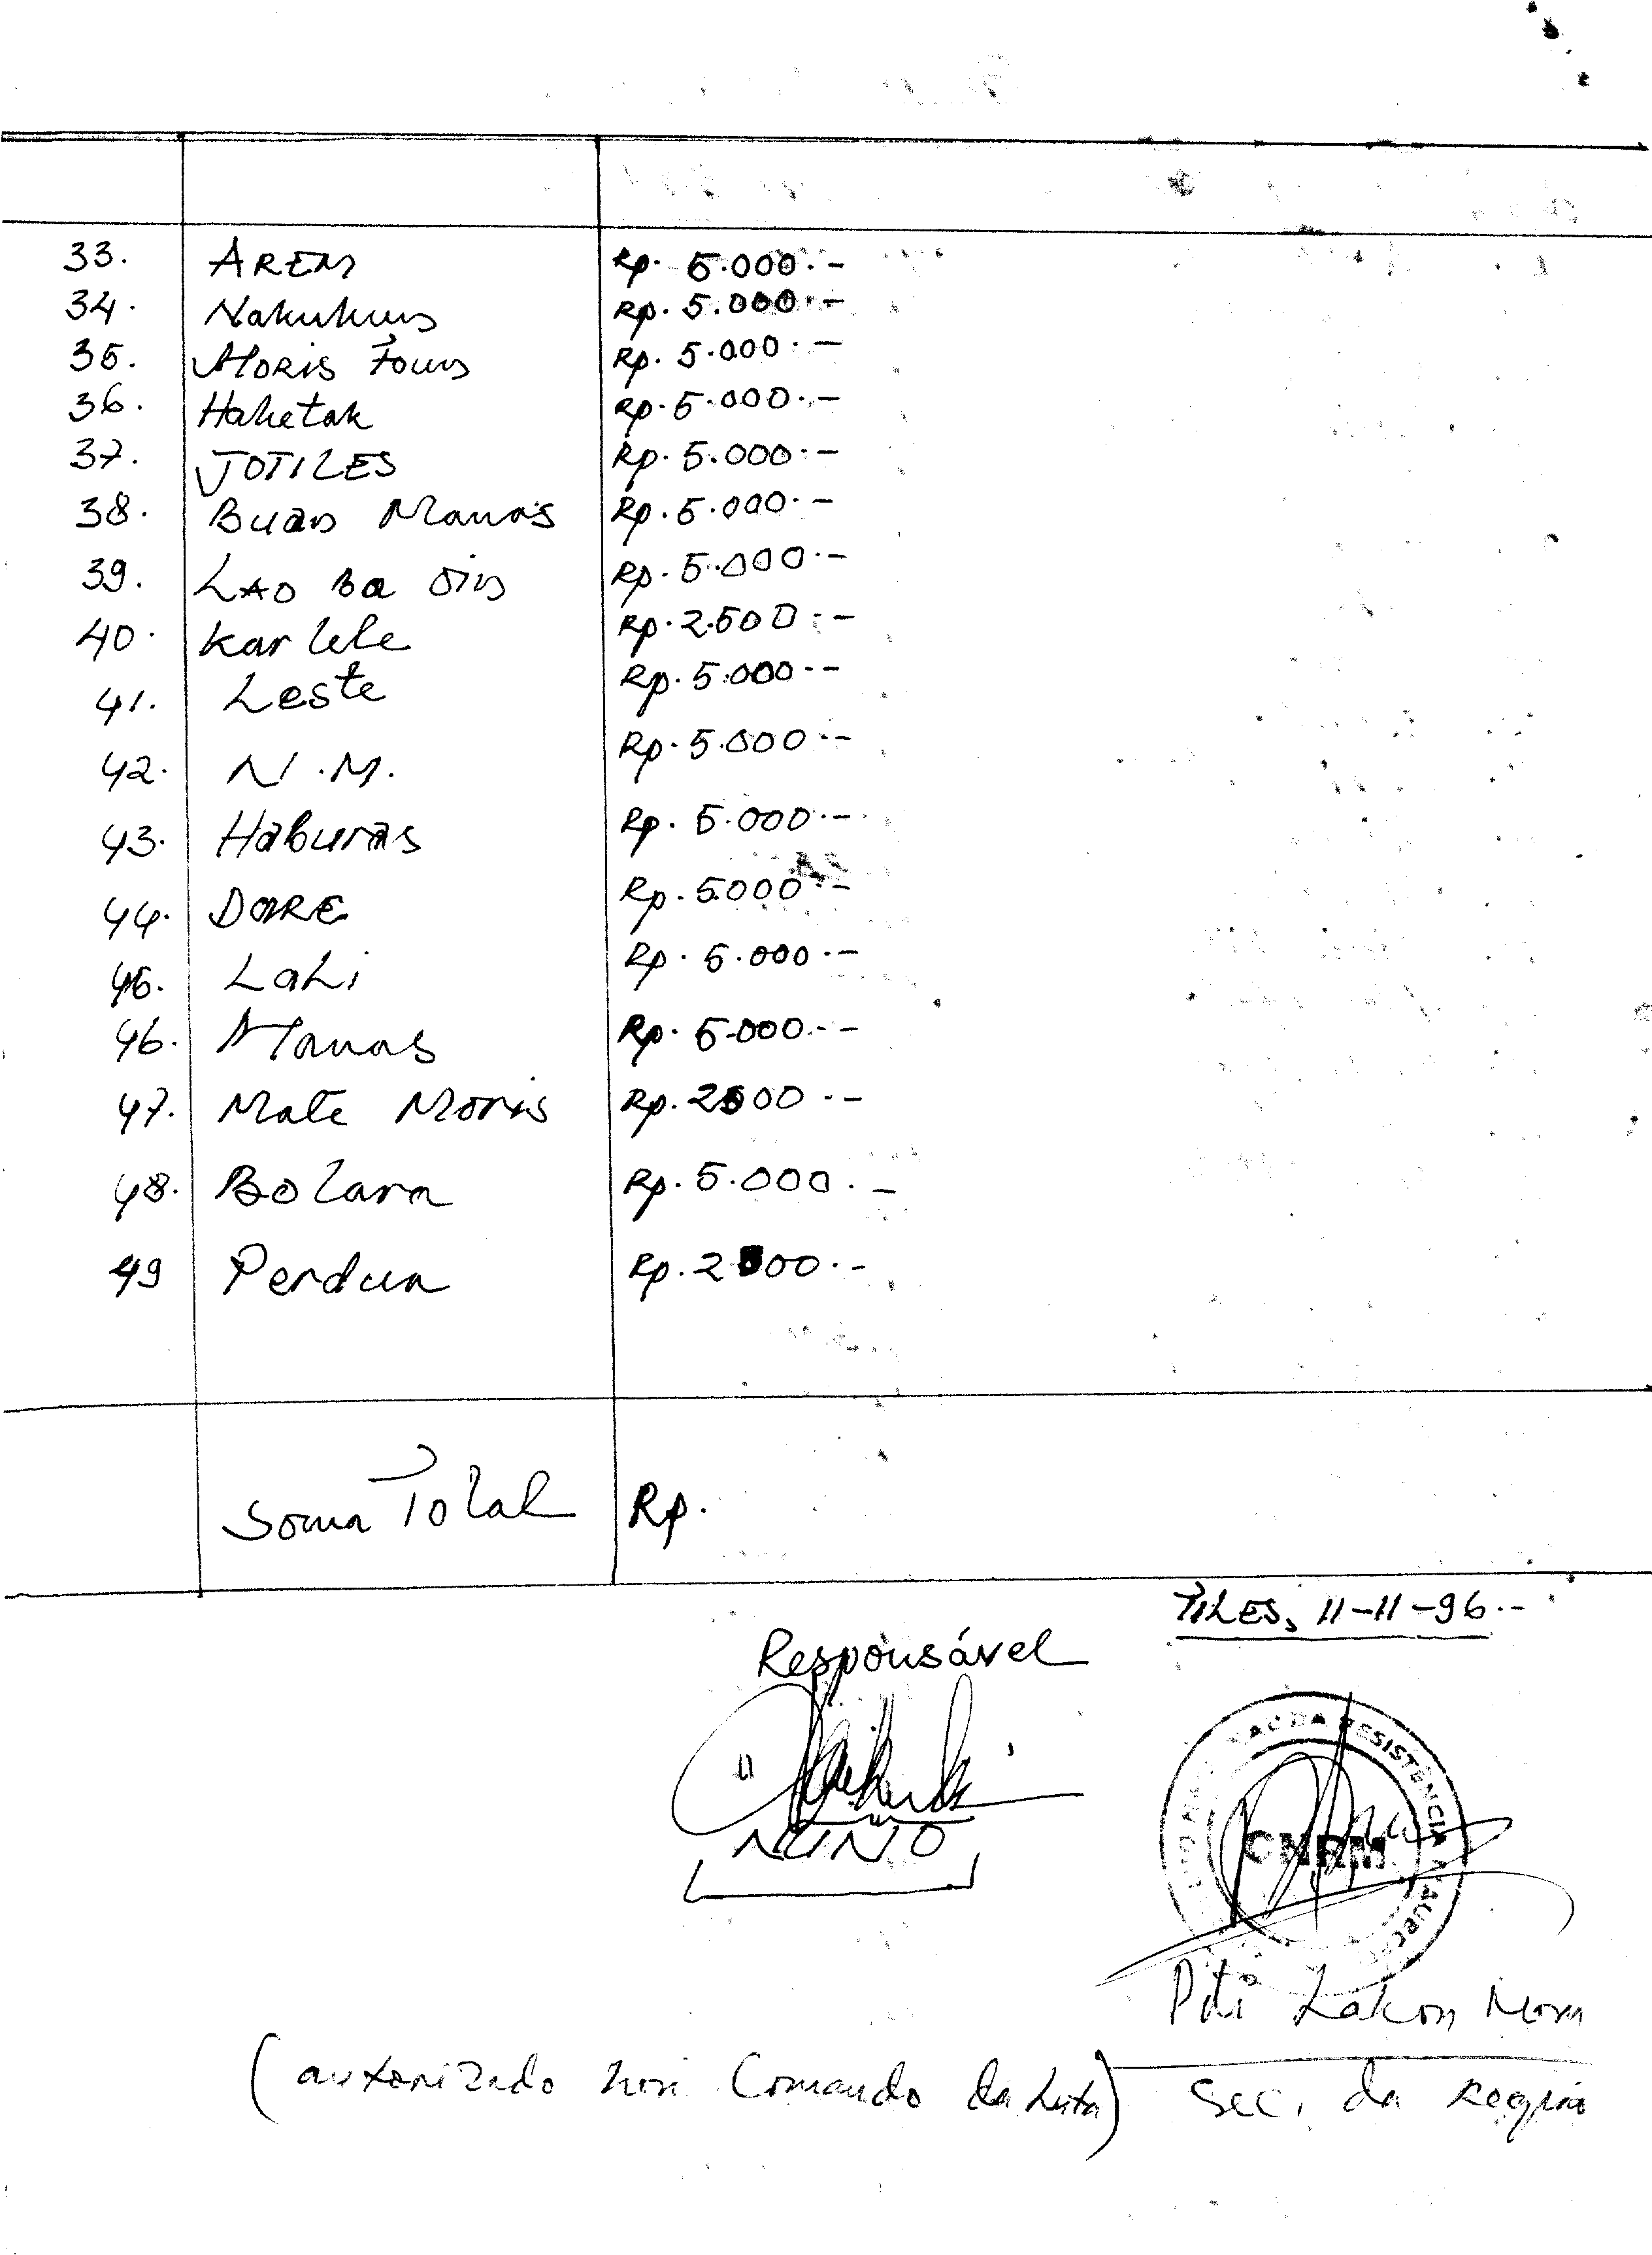 33. AREM Rp. 5.000.-
34. Nakukun Rp. 5.000.-
35. Moris Foun Rp. 5.000.-
36. Haketak Rp. 5.000.-
37. JOTILES Rp. 5.000.-
38. Buan Manas Rp. 5.000.-
39. LAO Ba Oin Rp. 5.000.-
40. Karlele Rp. 2.500.-
41. Leste Rp. 5.000.-
42. N.M. Rp. 5.000.-
43. Haburas Rp. 5.000.-
44. DARE Rp. 5.000.-
45. LaLi Rp. 5.000.-
46. Manas Rp. 5.000.-
47. Mate Moris Rp. 2500.-
48. Bolara Rp. 5.000.-
49 Perdua Rp. 2500.-
Soma Total Rp.
TILES, 11-11-96.-
Responsável
NUNO
DA RESISTÊNCIA
CNRM
Piti Lakon Mora
(autorizado hosi Comando da Luta) Sec. da Região